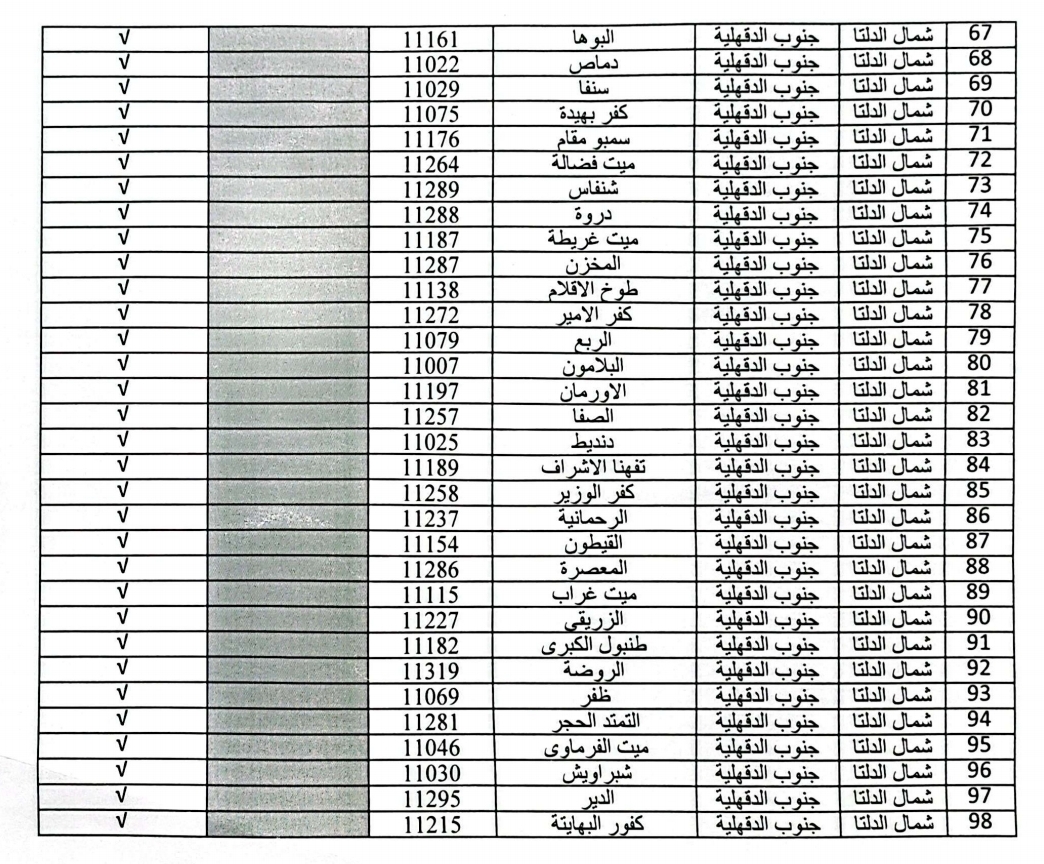 67 شمال الدلتا جنوب الدقهلية البوها 11161 √
68 شمال الدلتا جنوب الدقهلية دماص 11022 √
69 شمال الدلتا جنوب الدقهلية سنفا 11029 √
70 شمال الدلتا جنوب الدقهلية كفر بهيدة 11075 √
71 شمال الدلتا جنوب الدقهلية سمبو مقام 11176 √
72 شمال الدلتا جنوب الدقهلية ميت فضالة 11264 √
73 شمال الدلتا جنوب الدقهلية شنفاس 11289 √
74 شمال الدلتا جنوب الدقهلية دروة 11288 √
75 شمال الدلتا جنوب الدقهلية ميت غريطة 11187 √
76 شمال الدلتا جنوب الدقهلية المخزن 11287 √
77 شمال الدلتا جنوب الدقهلية طوخ الاقلام 11138 √
78 شمال الدلتا جنوب الدقهلية كفر الامير 11272 √
79 شمال الدلتا جنوب الدقهلية الربع 11079 √
80 شمال الدلتا جنوب الدقهلية البلامون 11007 √
81 شمال الدلتا جنوب الدقهلية الاورمان 11197 √
82 شمال الدلتا جنوب الدقهلية الصفا 11257 √
83 شمال الدلتا جنوب الدقهلية دنديط 11025 √
84 شمال الدلتا جنوب الدقهلية تفهنا الاشراف 11189 √
85 شمال الدلتا جنوب الدقهلية كفر الوزير 11258 √
86 شمال الدلتا جنوب الدقهلية الرحمانية 11237 √
87 شمال الدلتا جنوب الدقهلية القيطون 11154 √
88 شمال الدلتا جنوب الدقهلية المعصرة 11286 √
89 شمال الدلتا جنوب الدقهلية ميت غراب 11115 √
90 شمال الدلتا جنوب الدقهلية الزريقي 11227 √
91 شمال الدلتا جنوب الدقهلية طنبول الكبرى 11182 √
92 شمال الدلتا جنوب الدقهلية الروضة 11319 √
93 شمال الدلتا جنوب الدقهلية ظفر 11069 √
94 شمال الدلتا جنوب الدقهلية التمتد الحجر 11281 √
95 شمال الدلتا جنوب الدقهلية ميت الفرماوى 11046 √
96 شمال الدلتا جنوب الدقهلية شبراويش 11030 √
97 شمال الدلتا جنوب الدقهلية الدير 11295 √
98 شمال الدلتا جنوب الدقهلية كفور البهايتة 11215 √